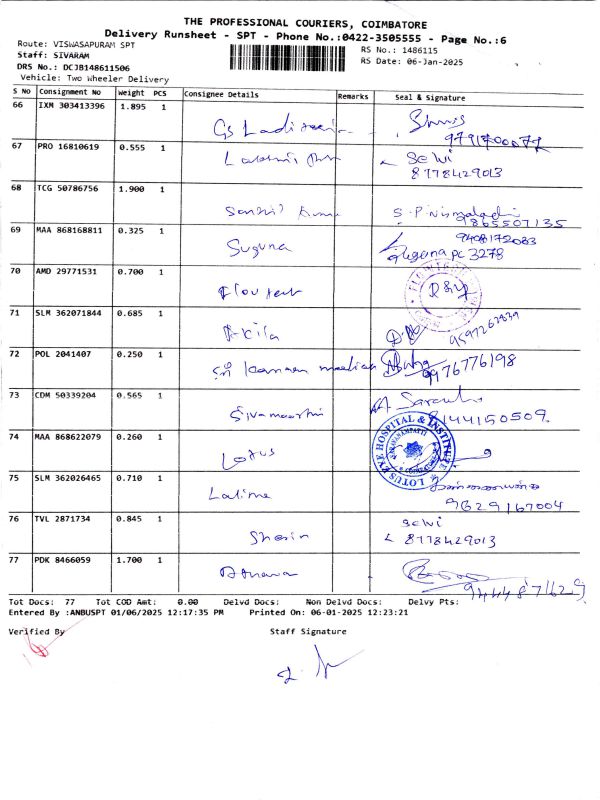 THE PROFESSIONAL COURIERS, COIMBATORE
Delivery Runsheet - SPT - Phone No.:0422-3505555 - Page No.:6
Route: VISWASAPURAM SPT
RS No.: 1486115
Staff: SIVARAM
RS Date: 06-Jan-2025
DRS No.: DCJB148611506
Vehicle: Two Wheeler Delivery
S No Consignment No Weight PCS Consignee Details Remarks Seal & Signature
66 IXM 303413396 1.895 1
67 PRO 16810619 0.555 1 Lakshmi Selvi
8778429013
68 TCG 50786756 1.900 1 Senthil Kumar S.P.Nirmaladevi
9865507135
69 MAA 868168811 0.325 1 Suguna
70 AMD 29771531 0.700 1
71 SLM 362071844 0.685 1 Akila
72 POL 2041407 0.250 1 Sri Kannan medical 9976776198
73 CDM 50339204 0.565 1 Sivamoorthi
8144150509.
74 MAA 868622079 0.260 1 Lotus LOTUS EYE HOSPITAL & INSTITUTE
75 SLM 362026465 0.710 1
9629167004
76 TVL 2871734 0.845 1 Sherin Selvi
8778429013
77 PDK 8466059 1.700 1
Tot Docs: 77 Tot COD Amt: 0.00 Delvd Docs: Non Delvd Docs: Delvy Pts:
Entered By :ANBUSPT 01/06/2025 12:17:35 PM Printed On: 06-01-2025 12:23:21
Verified By Staff Signature